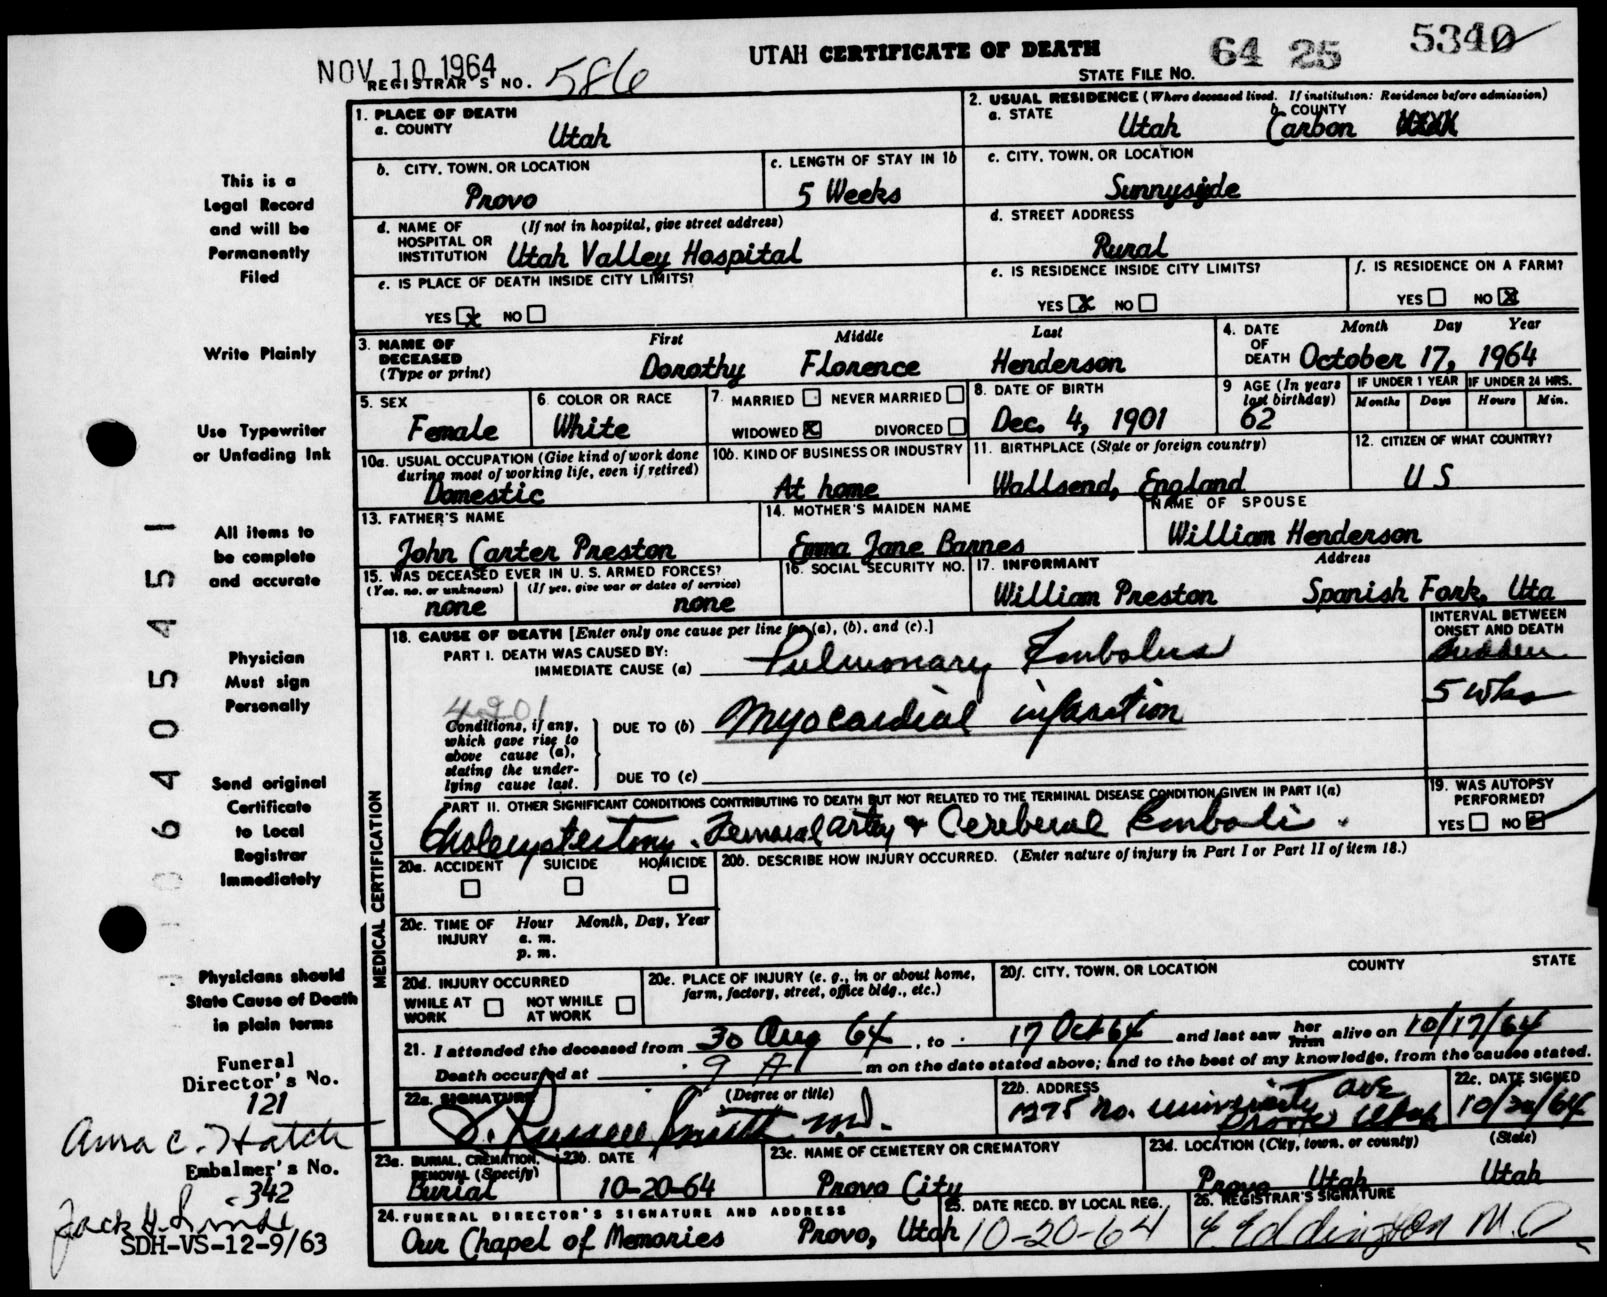 NOV 10 1964
UTAH CERTIFICATE OF DEATH
64 25 5340
REGISTRAR'S NO. 586
STATE FILE NO.
1. PLACE OF DEATH
a. COUNTY
Utah
2. USUAL RESIDENCE (Where deceased lived. If institution: Residence before admission)
a. STATE
Utah
b. COUNTY
Carbon
b. CITY, TOWN, OR LOCATION
Provo
c. LENGTH OF STAY IN 1b
5 Weeks
c. CITY, TOWN, OR LOCATION
Sunnyside
d. NAME OF HOSPITAL OR INSTITUTION (If not in hospital, give street address)
Utah Valley Hospital
d. STREET ADDRESS
Rural
e. IS PLACE OF DEATH INSIDE CITY LIMITS?
YES X NO
e. IS RESIDENCE INSIDE CITY LIMITS?
YES X NO
f. IS RESIDENCE ON A FARM?
YES NO X
3. NAME OF DECEASED (Type or print)
First Middle Last
Dorothy Florence Henderson
4. DATE OF DEATH
Month Day Year
October 17, 1964
5. SEX
Female
6. COLOR OR RACE
White
7. MARRIED NEVER MARRIED
WIDOWED X DIVORCED
8. DATE OF BIRTH
Dec. 4, 1901
9 AGE (In years last birthday)
62
IF UNDER 1 YEAR
Months Days
IF UNDER 24 HRS.
Hours Min.
10a. USUAL OCCUPATION (Give kind of work done during most of working life, even if retired)
Domestic
10b. KIND OF BUSINESS OR INDUSTRY
At home
11. BIRTHPLACE (State or foreign country)
Wallsend, England
12. CITIZEN OF WHAT COUNTRY?
U S
13. FATHER'S NAME
John Carter Preston
14. MOTHER'S MAIDEN NAME
Emma Jane Barnes
NAME OF SPOUSE
William Henderson
15. WAS DECEASED EVER IN U. S. ARMED FORCES?
(Yes, no, or unknown) (If yes, give war or dates of service)
none none
16. SOCIAL SECURITY NO.
17. INFORMANT Address
William Preston Spanish Fork, Uta
18. CAUSE OF DEATH [Enter only one cause per line for (a), (b), and (c).]
INTERVAL BETWEEN ONSET AND DEATH
PART I. DEATH WAS CAUSED BY:
IMMEDIATE CAUSE (a) Pulmonary Embolus
Sudden
4201
Conditions, if any, which gave rise to above cause (a), stating the underlying cause last.
DUE TO (b) Myocardial infarction
5 Wks
DUE TO (c)
PART II. OTHER SIGNIFICANT CONDITIONS CONTRIBUTING TO DEATH BUT NOT RELATED TO THE TERMINAL DISEASE CONDITION GIVEN IN PART I(a)
Cholecystectomy. Femoral artery & Cerebral Emboli.
19. WAS AUTOPSY PERFORMED?
YES NO X
MEDICAL CERTIFICATION
20a. ACCIDENT SUICIDE HOMICIDE
20b. DESCRIBE HOW INJURY OCCURRED. (Enter nature of injury in Part I or Part II of item 18.)
20c. TIME OF INJURY Hour Month, Day, Year
a. m.
p. m.
20d. INJURY OCCURRED
WHILE AT WORK NOT WHILE AT WORK
20e. PLACE OF INJURY (e. g., in or about home, farm, factory, street, office bldg., etc.)
20f. CITY, TOWN, OR LOCATION COUNTY STATE
21. I attended the deceased from 30 Aug 64, to 17 Oct 64 and last saw her him alive on 10/17/64
Death occurred at 9 A m on the date stated above; and to the best of my knowledge, from the causes stated.
22a. SIGNATURE (Degree or title)
Russell Smith M.D.
22b. ADDRESS
1275 No. University Ave
Provo Utah
22c. DATE SIGNED
10/20/64
23a. BURIAL, CREMATION, REMOVAL (Specify)
Burial
23b. DATE
10-20-64
23c. NAME OF CEMETERY OR CREMATORY
Provo City
23d. LOCATION (City, town, or county) (State)
Provo Utah Utah
24. FUNERAL DIRECTOR'S SIGNATURE AND ADDRESS
Our Chapel of Memories Provo, Utah
25. DATE RECD. BY LOCAL REG.
10-20-64
26. REGISTRAR'S SIGNATURE
E Eddington M.D
This is a
Legal Record
and will be
Permanently
Filed
Write Plainly
Use Typewriter
or Unfading Ink
All items to
be complete
and accurate
Physician
Must sign
Personally
Send original
Certificate
to Local
Registrar
Immediately
Physicians should
State Cause of Death
in plain terms
Funeral
Director's No.
121
Anna C. Hatch
Embalmer's No.
342
SDH-VS-12-9/63